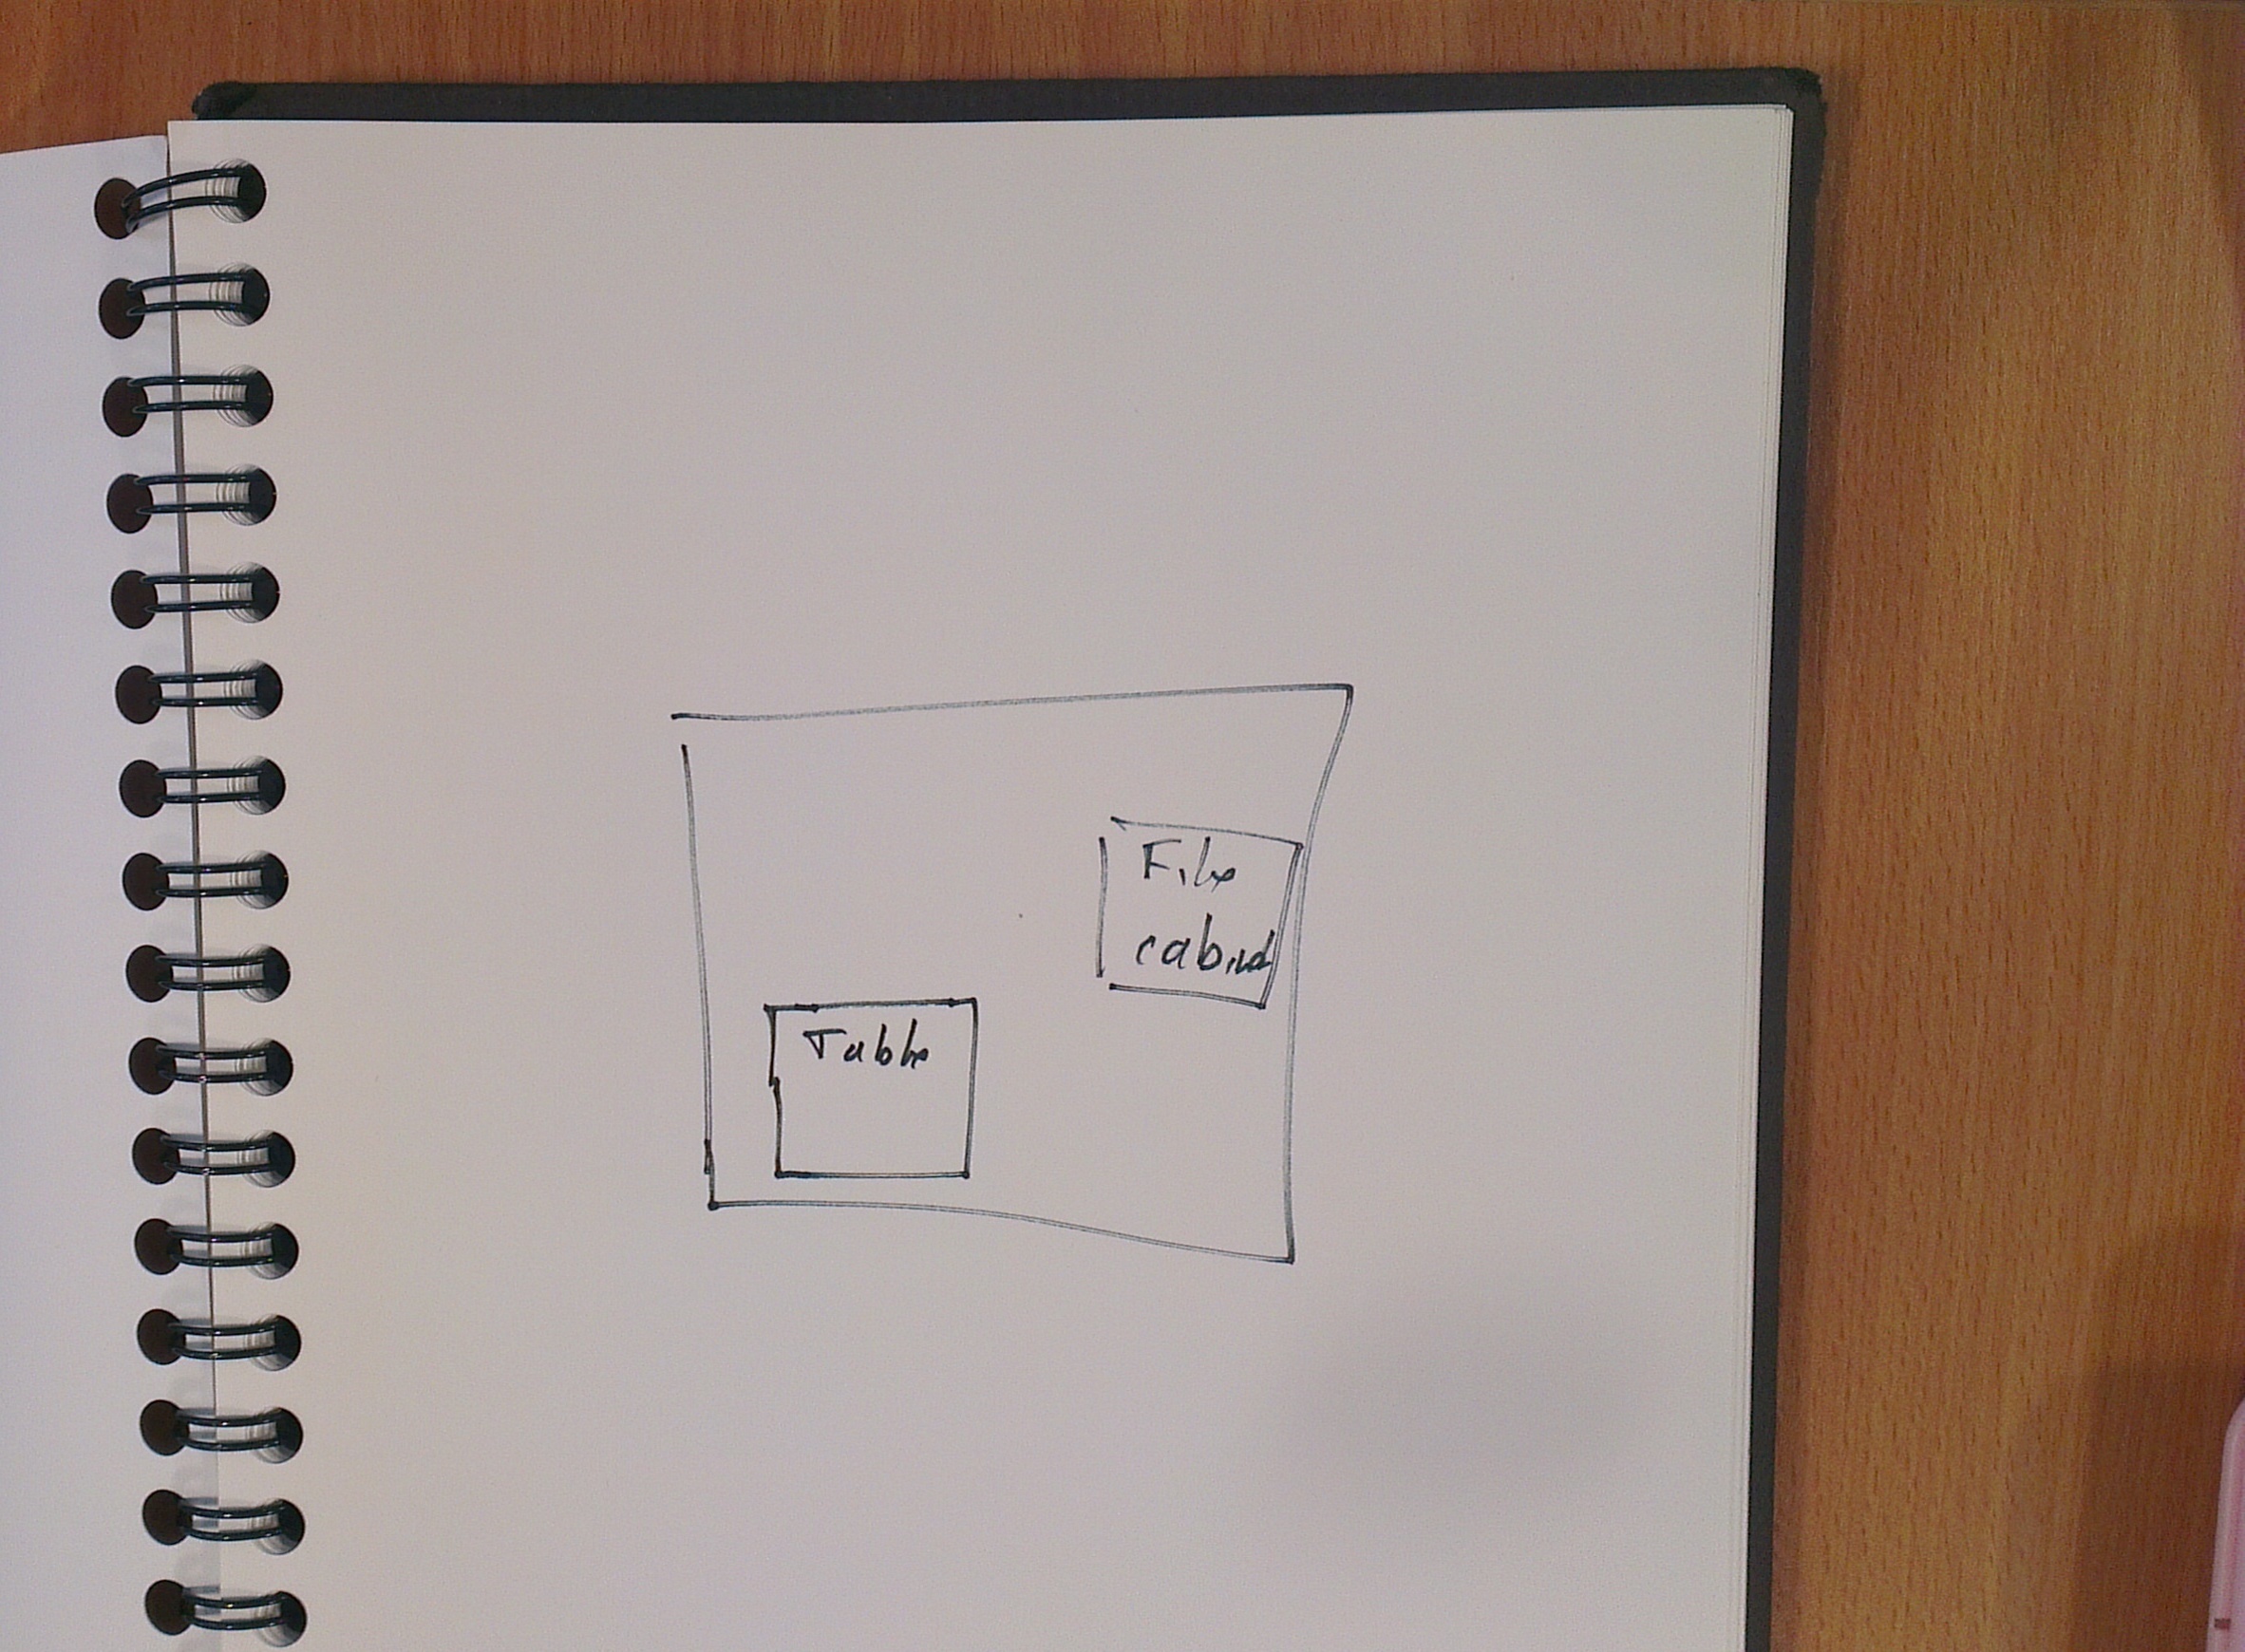 File
cabinet
Table